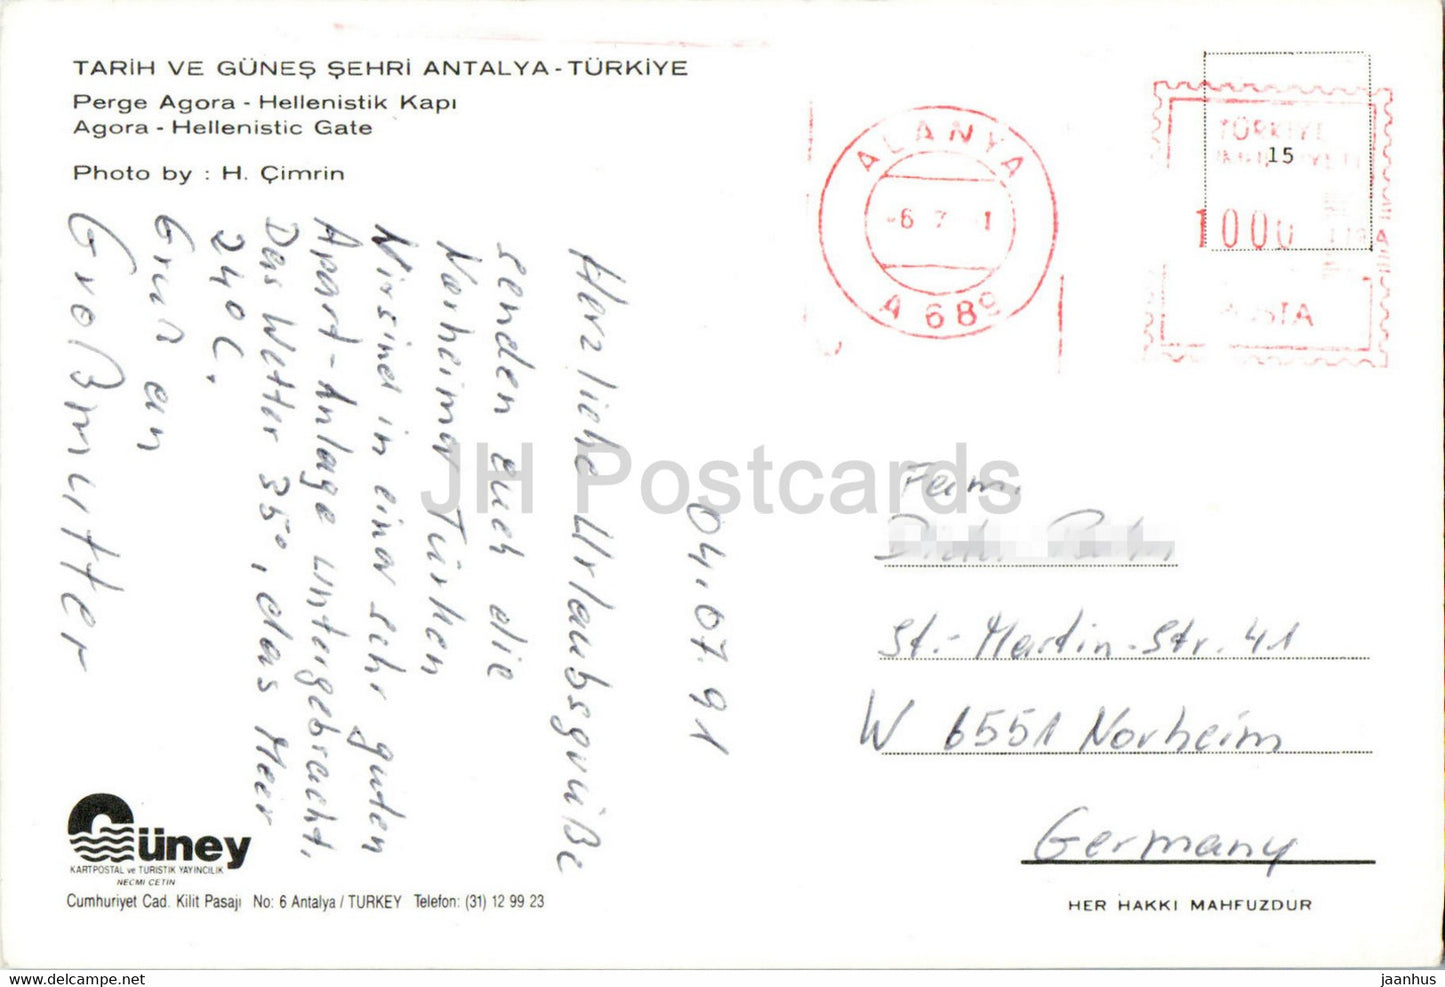 TARİH VE GÜNEŞ ŞEHRİ ANTALYA-TÜRKİYE
Perge Agora - Hellenistik Kapı
Agora - Hellenistic Gate
Photo by : H. Çimrin
04.07.91
Herzliche Urlaubsgrüße
senden euch die
Norheimer Türken
Wir sind in einer sehr guten
Apart-Anlage untergebracht,
Das Wetter 35°, das Meer
24°C.
Gruß an
Großmutter
ALANYA
-6 7 1
A 689
TÜRKİYE
15
1000
POSTA
Fam.
St.-Martin-Str. 41
W 6551 Norheim
Germany
Güney
KARTPOSTAL ve TURİSTİK YAYINCILIK
NECMİ ÇETİN
Cumhuriyet Cad. Kilit Pasajı No: 6 Antalya / TURKEY Telefon: (31) 12 99 23
HER HAKKI MAHFUZDUR
JH Postcards
https://www.delcampe.net
jaanhus